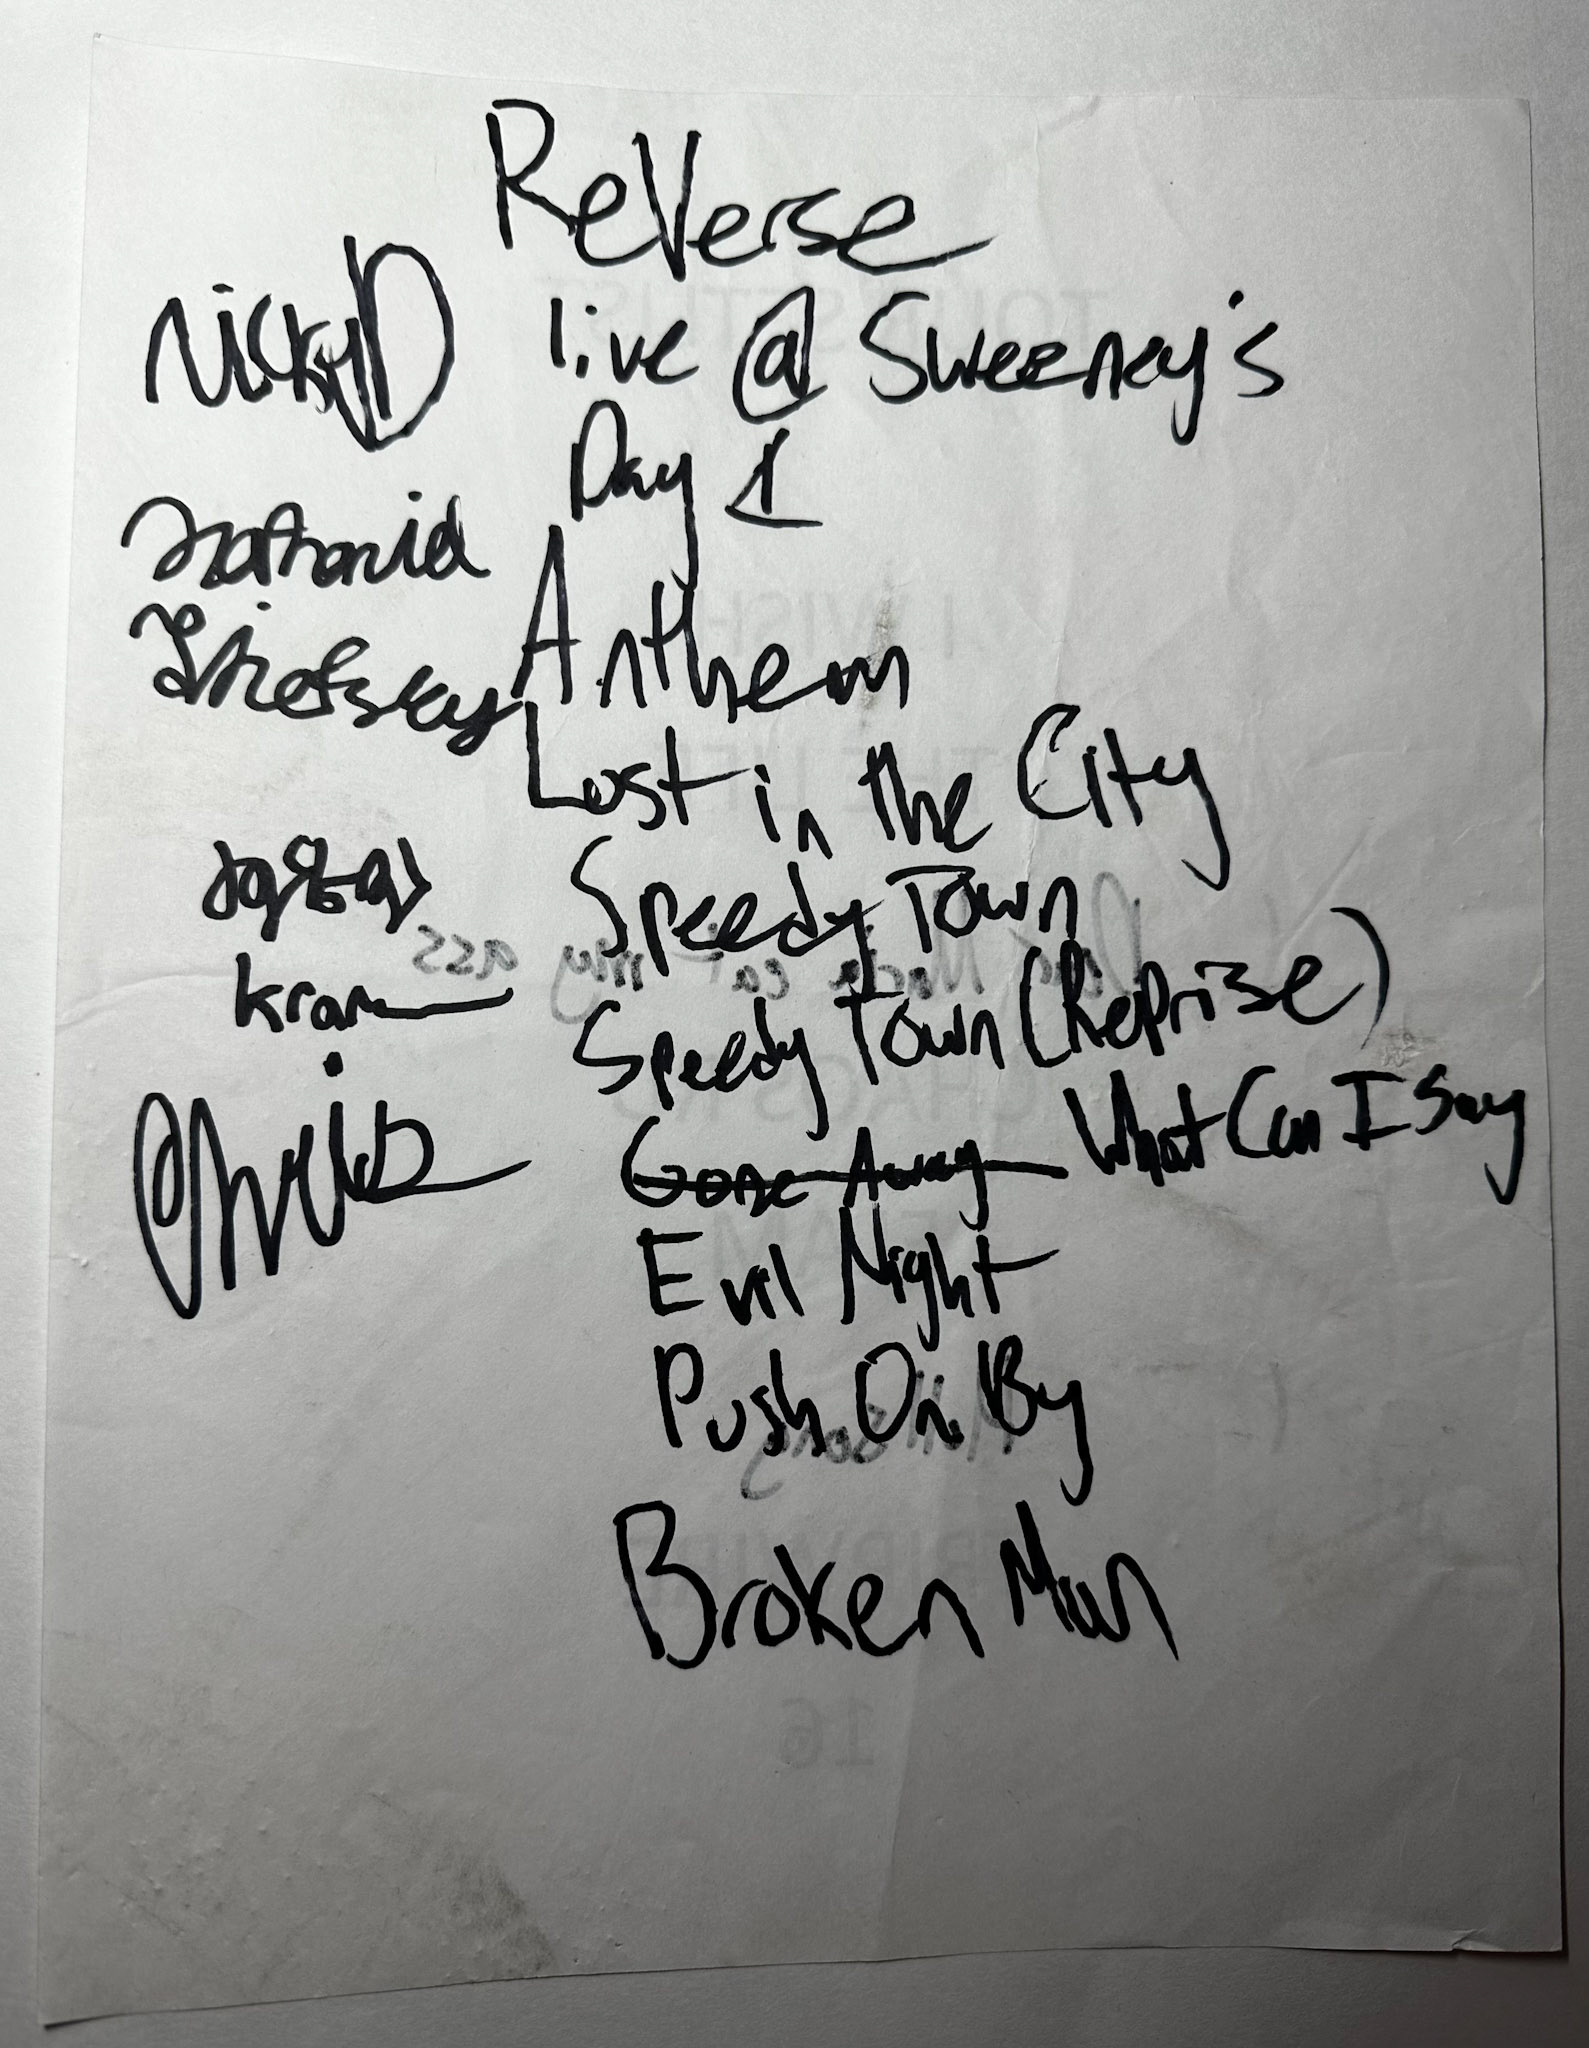 ReVerse
NickyD
live @ Sweeney's
Day 1
Nathaniel
Anthem
Lost in the City
Speedy Town
Kram
Speedy Town (Reprise)
Chris
Gone Away What Can I Say
Evil Night
Push On By
Broken Man
16